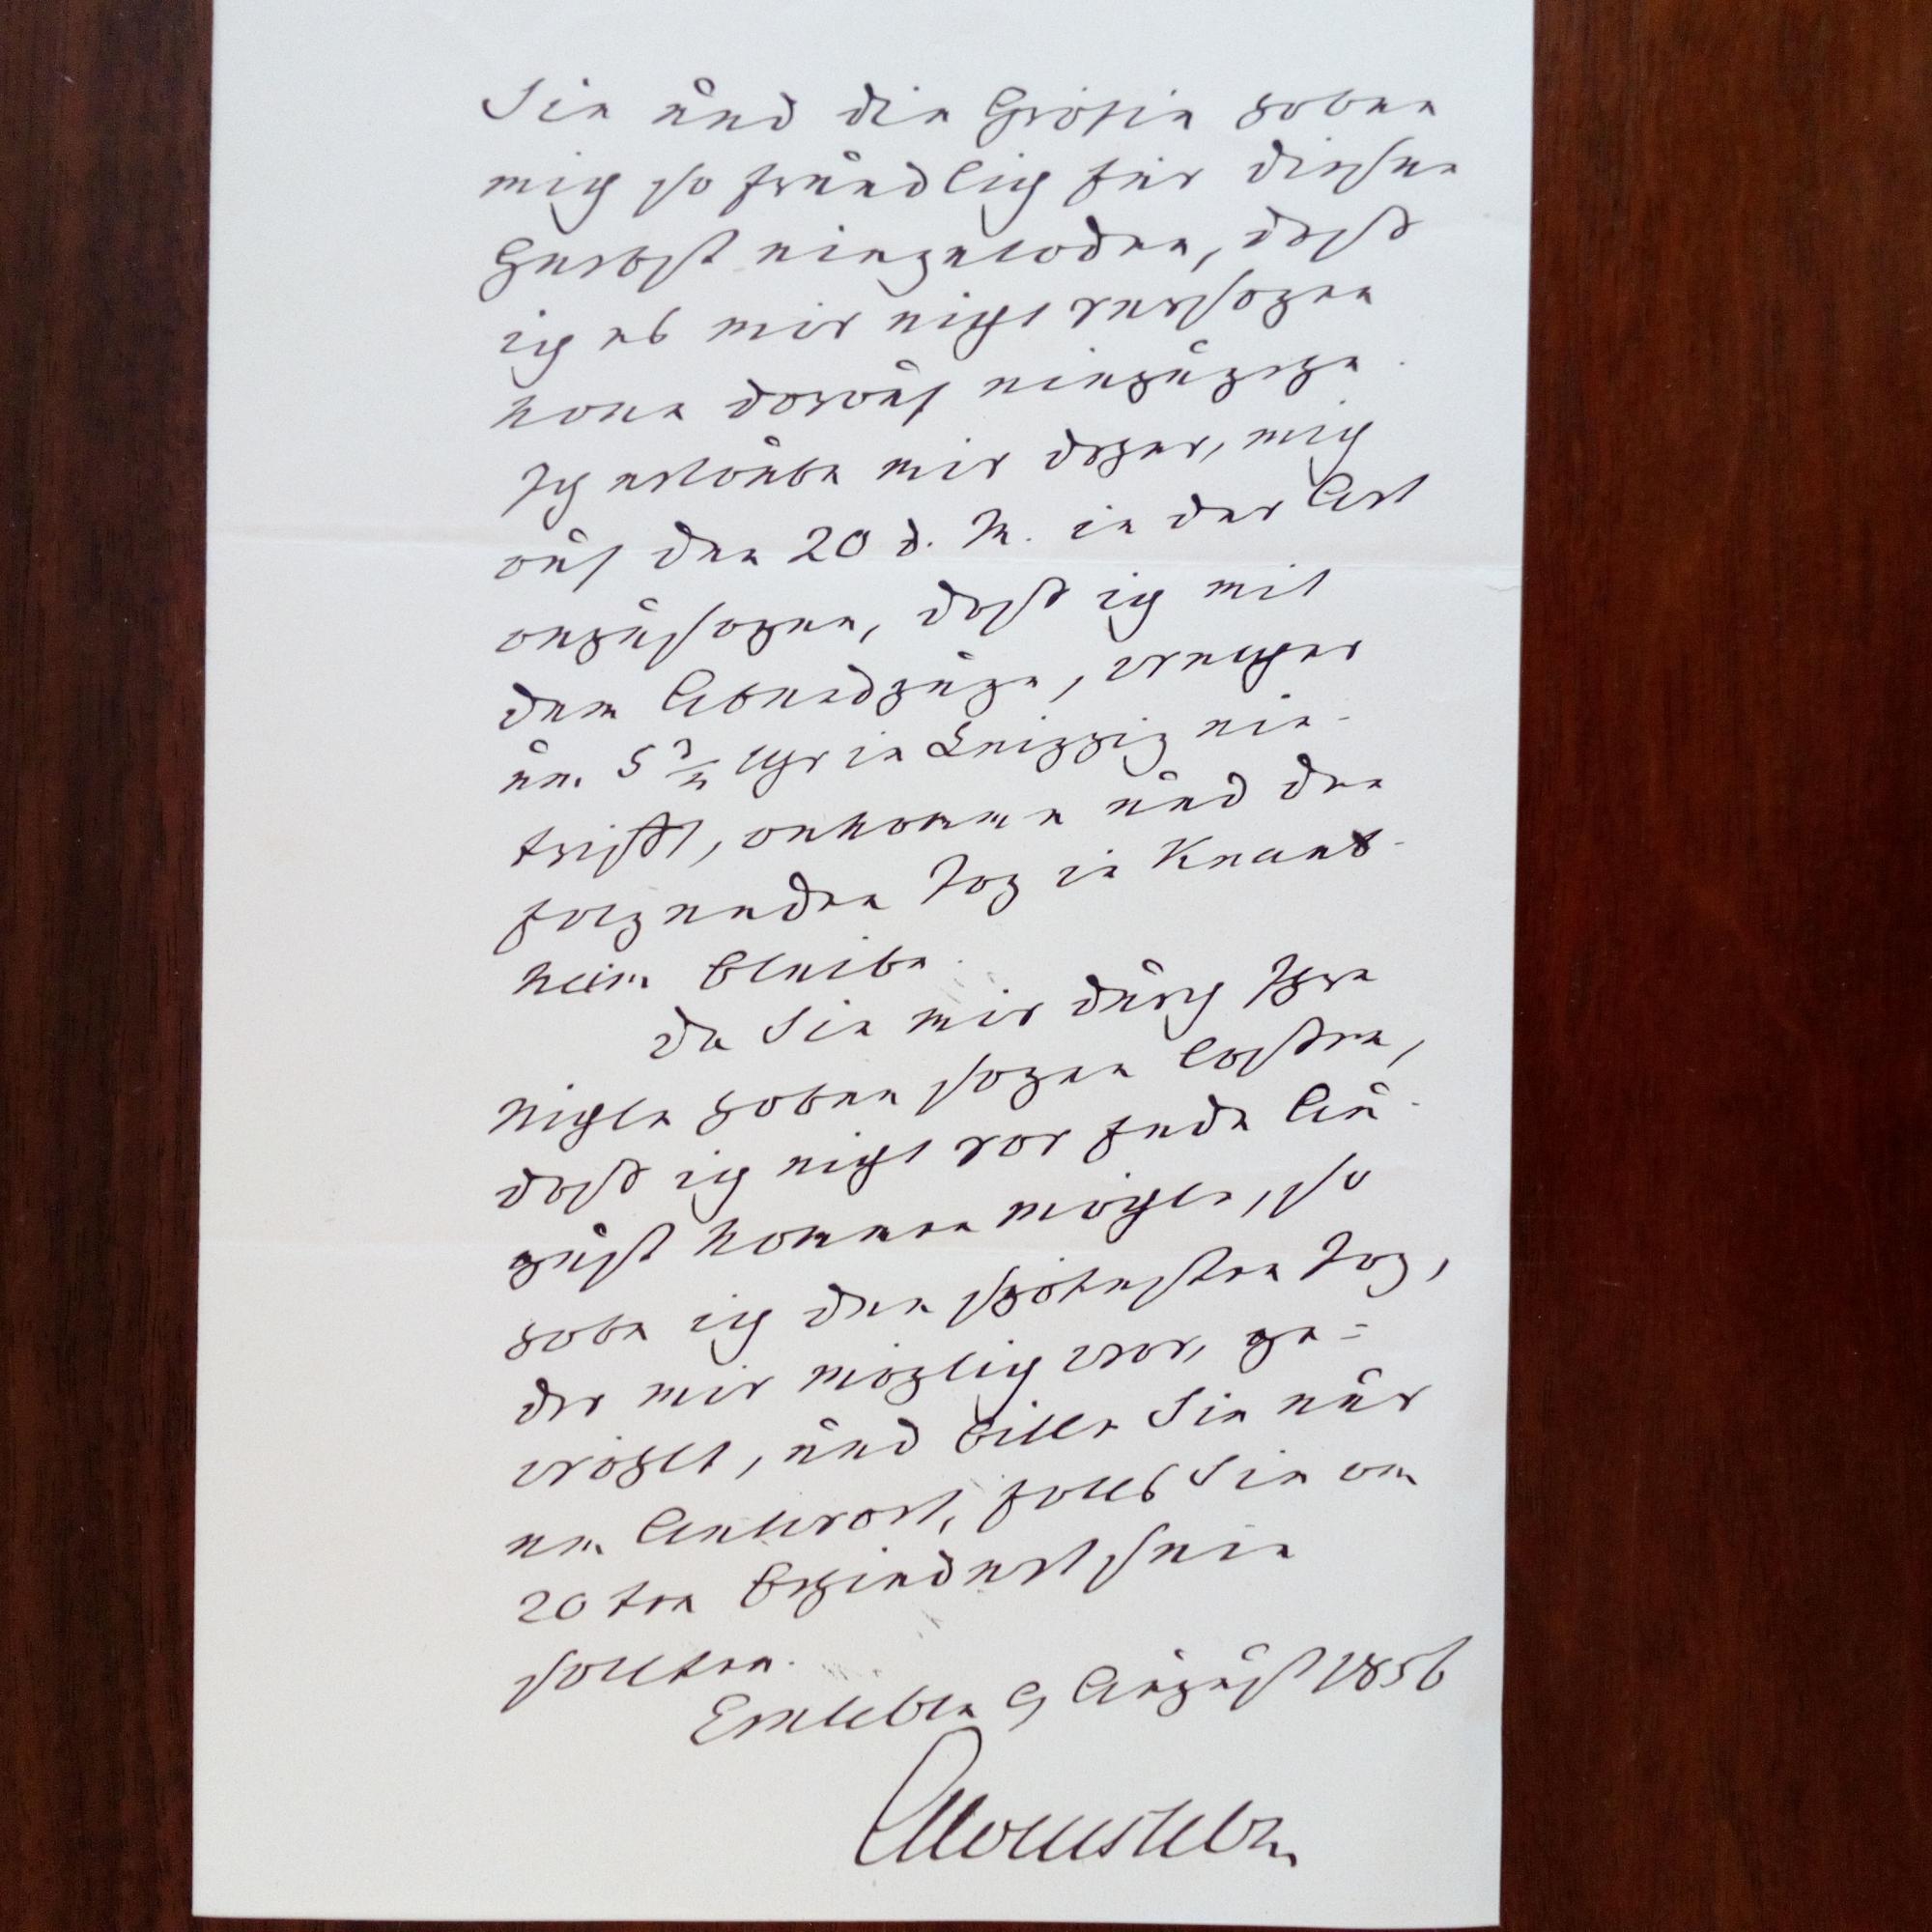 Sie und die Gräfin haben
mich so freundlich für diesen
Herbst eingeladen, daß
ich es mir nicht versagen
kann darauf einzugehen.
Ich erlaube mir daher, mich
auf den 20 d. M. in der Art
anzusagen, daß ich mit
dem Abendzuge, welcher
um 5 3/4 Uhr in Leipzig ein-
trifft, ankomme und den
folgenden Tag in Knaut-
hein bleibe.
Da Sie mir durch Ihre
Nichte haben sagen lassen,
daß ich nicht vor Ende Au-
gust kommen möchte, so
habe ich den spätesten Tag,
der mir möglich war, ge=
wählt, und bitte Sie nur
um Antwort, falls Sie am
20ten behindert sein
sollten.
Erxleben 9 August 1856
Alvensleben